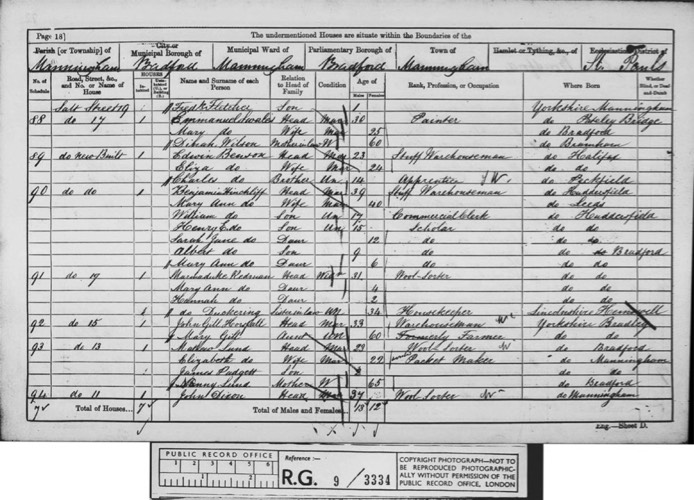 Page 18]
The undermentioned Houses are situate within the Boundaries of the
Parish [or Township] of
City or
Municipal Borough of
Municipal Ward of
Parliamentary Borough of
Town of
Hamlet or Tything, &c., of
Ecclesiastical District of
Manningham Bradford Manningham Bradford Manningham St. Pauls
No. of Schedule
Road, Street, &c., and No. or Name of House
HOUSES
Name and Surname of each Person
Relation to Head of Family
Condition
Age of
Males
Females
Rank, Profession, or Occupation
Where Born
Whether Blind, or Deaf-and-Dumb
Salt Street 19 Son 1 Yorkshire Manningham
88 do 17 1 Head Mar 30 Painter do Pateley Bridge
Mary do Wife Mar 25 do Bradford
Wilson Motherinlaw W 60 do Bramham
89 do New Built 1 Edwin Benson Head Mar 23 Stuff Warehouseman do Halifax
Eliza do Wife Mar 24 do do
Charles do Brother Un 14 Apprentice do
90 do do 1 Benjamin Hinchliff Head Mar 39 Stuff Warehouseman do Huddersfield
Mary Ann do Wife Mar 40 do Leeds
William do Son Un 17 Commercial Clerk do Huddersfield
Henry E do Son Un 15 Scholar do do
Sarah Jane do Daur 12 do do do
Albert do Son 9 do do Bradford
Mary Ann do Daur 6 do do do
91 do 17 1 Marmaduke Redman Head Wid 31 Wool-Sorter do do
Mary Ann do Daur 4 do do
Hannah do Daur 2 do do
do Sisterinlaw Un 34 Housekeeper Lincolnshire
92 do 15 1 John Gill Horsfall Head Mar 33 Warehouseman Yorkshire
Mary Gill Aunt Un 60 Formerly Farmer do do
93 do 13 1 Lund Head Mar 23 Wool-Sorter do Bradford
Elizabeth do Wife Mar 22 Packet Maker do Manningham
James Padgett Son do do
Nanny Lund Mother W 65 do Bradford
94 do 11 1 John Dixon Head Mar 37 Wool-Sorter do Manningham
7 Total of Houses... 7 Total of Males and Females... 13 12
Eng.—Sheet D.
PUBLIC RECORD OFFICE
1 2 3 4 5 6
Reference :-
R.G. 9 / 3334
COPYRIGHT PHOTOGRAPH—NOT TO
BE REPRODUCED PHOTOGRAPHIC-
ALLY WITHOUT PERMISSION OF THE
PUBLIC RECORD OFFICE, LONDON